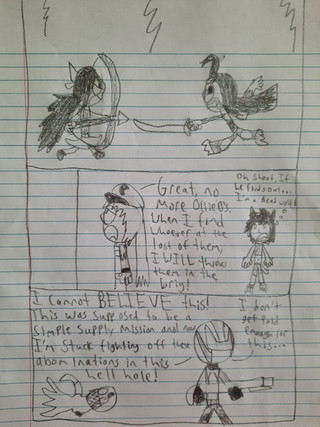 Great, no
more Ollie Os.
When I find
whoever ate the
last of them,
I WILL throw
them in the
brig!
Oh shoot, If
he finds out...
I'm a dead wolf!
I cannot BELIEVE this!
This was supposed to be a
simple supply mission and now
I'm stuck fighting off these
abominations in this
hell hole!
I don't
get paid
enough for
this...